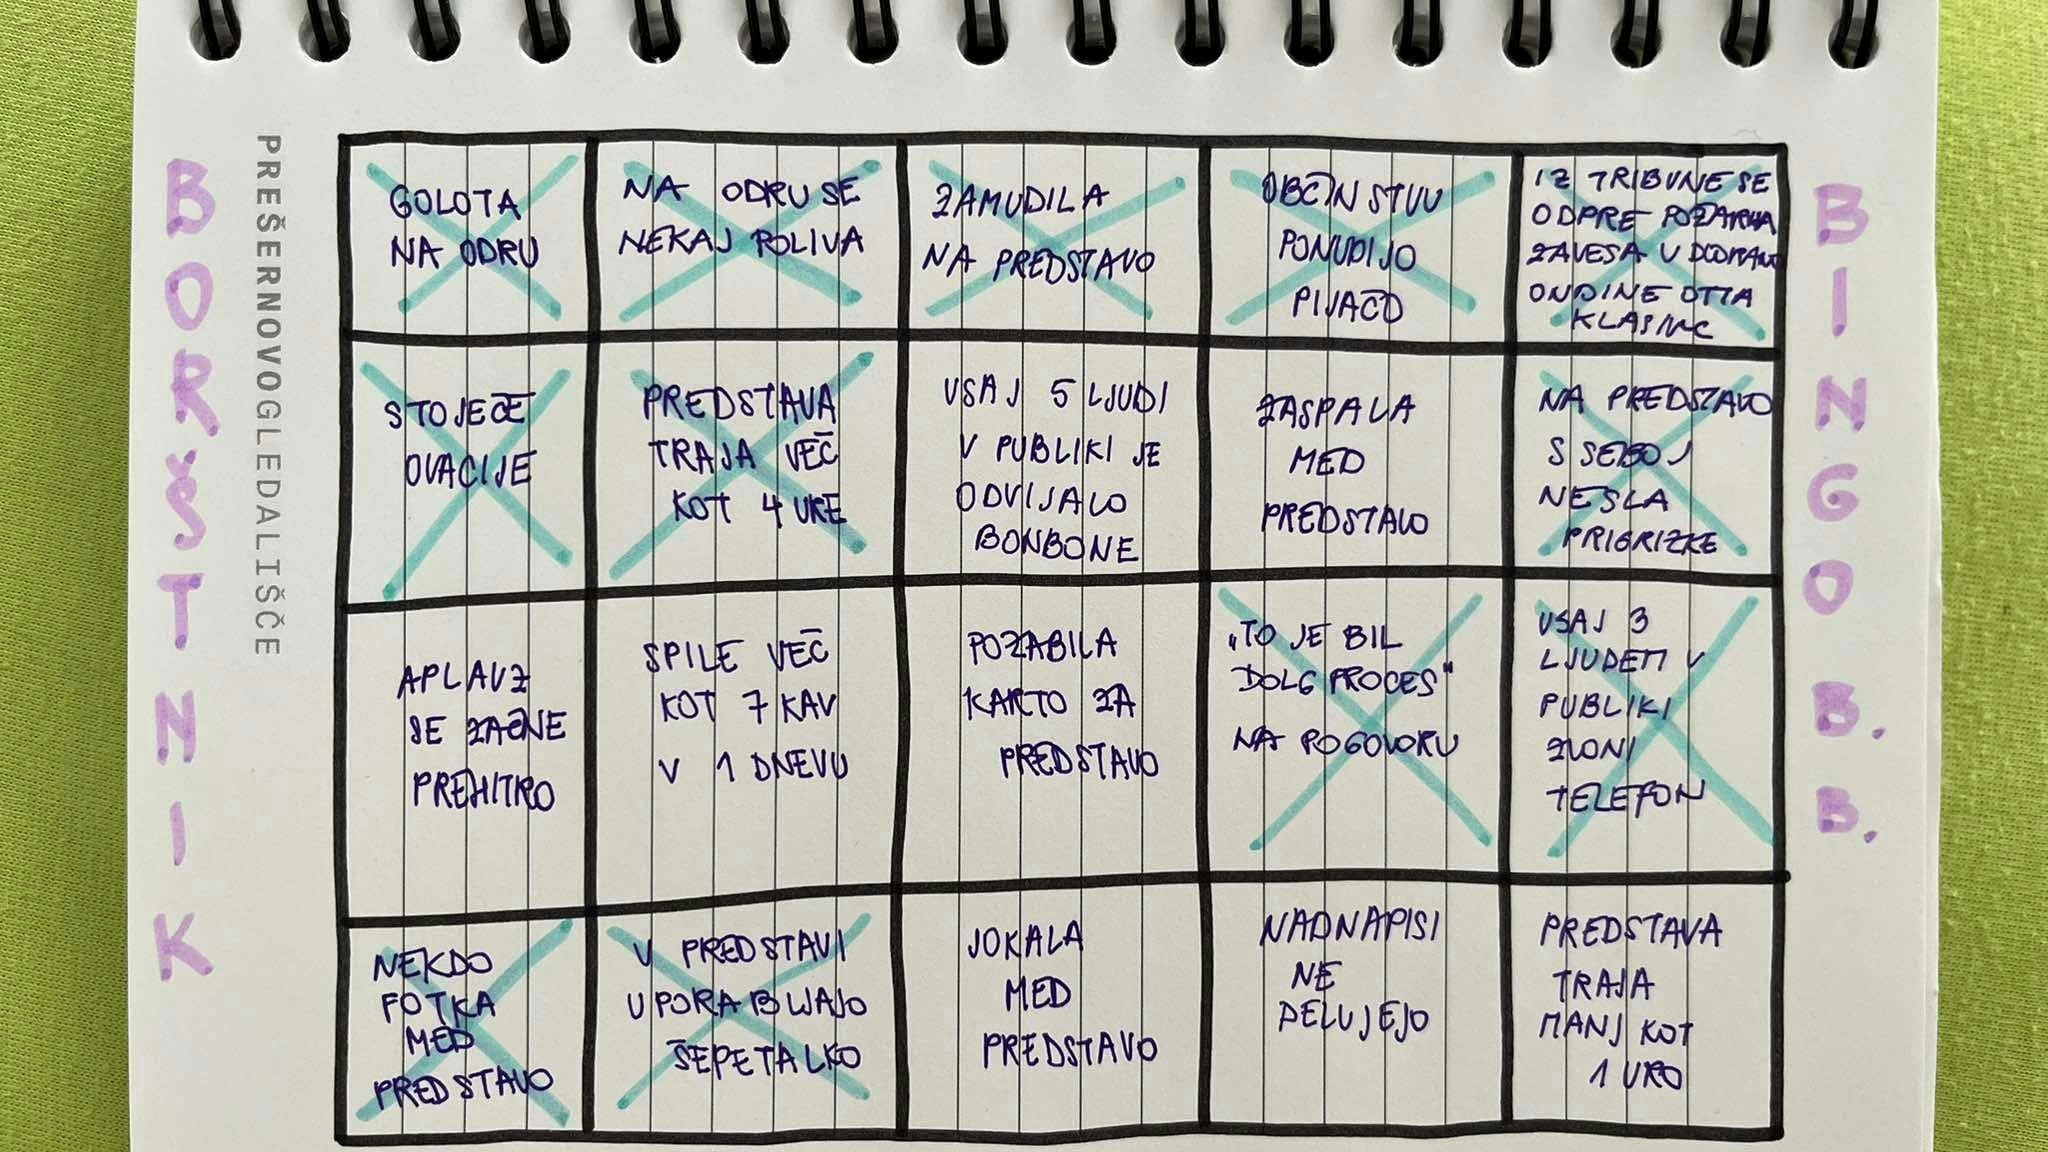 BORŠTNIK
PREŠERNOVOGLEDALIŠČE
GOLOTA
NA ODRU
NA ODRU SE
NEKAJ POLIVA
ZAMUDILA
NA PREDSTAVO
OBČINSTVU
PONUDIJO
PIJAČO
IZ TRIBUNE SE
ODPRE POŽARNA
ZAVESA V DVORANO
ONDINE OTTA
STOJEČE
OVACIJE
PREDSTAVA
TRAJA VEČ
KOT 4 URE
VSAJ 5 LJUDI
V PUBLIKI JE
ODVIJALO
BONBONE
ZASPALA
MED
PREDSTAVO
NA PREDSTAVO
S SEBOJ
NESLA
PRIGRIZKE
APLAVZ
SE ZAČNE
PREHITRO
SPILE VEČ
KOT 7 KAV
V 1 DNEVU
POZABILA
KARTO ZA
PREDSTAVO
„TO JE BIL
DOLG PROCES“
NA POGOVORU
VSAJ 3
LJUDEM V
PUBLIKI
ZVONI
TELEFON
NEKDO
FOTKA
MED
PREDSTAVO
V PREDSTAVI
UPORABLJAJO
ŠEPETALKO
JOKALA
MED
PREDSTAVO
NADNAPISI
NE
DELUJEJO
PREDSTAVA
TRAJA
MANJ KOT
1 URO
BINGO B. B.